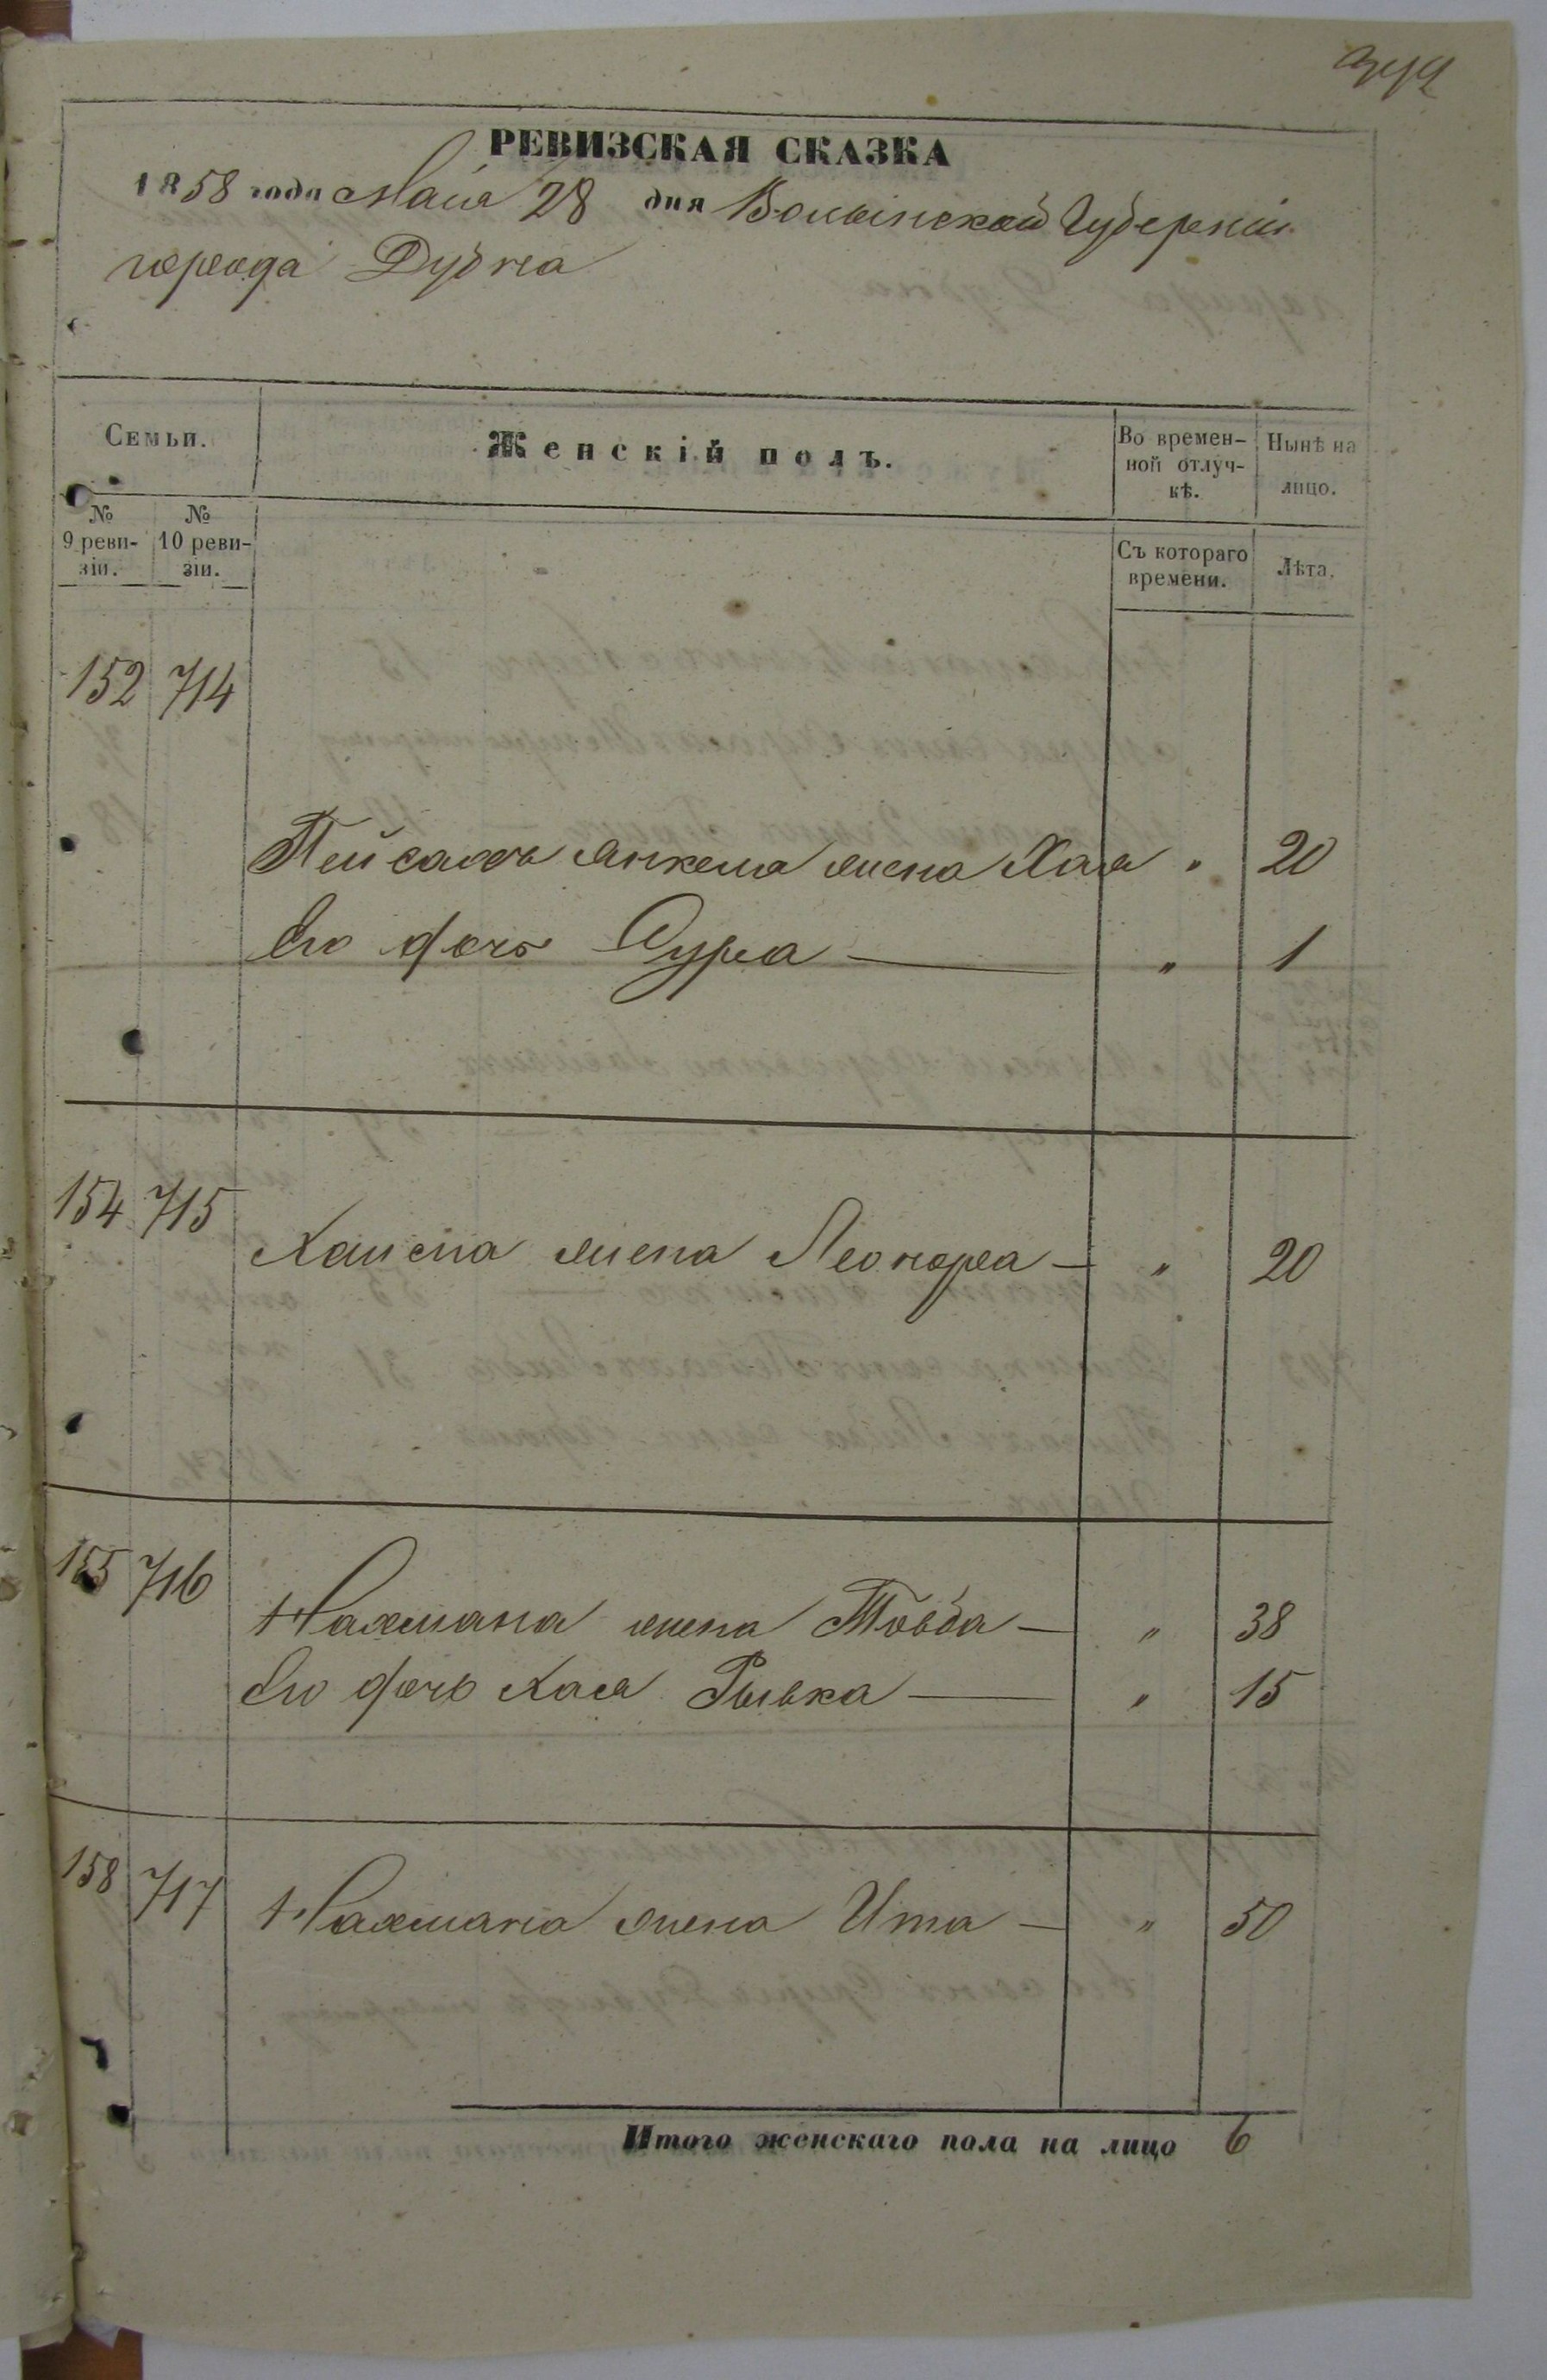 РЕВИЗСКАЯ СКАЗКА
1858 года Мая 28 дня Волынской Губерніи
города Дубна
Семьи.
Женскій полъ.
Во времен-
ной отлуч-
кѣ.
Нынѣ на
лицо.
№
9 реви-
зіи.
№
10 реви-
зіи.
Съ котораго
времени.
Лѣта.
152 714
Пейсахъ Янкеля жена Хая " 20
Его дочь Сура — " 1
154 715
Хаима жена Леонора — " 20
155 716
Нахмана жена Товба — " 38
Его дочь Хая Рывка — " 15
158 717 Нахмана жена Ита — " 50
Итого женскаго пола на лицо 6